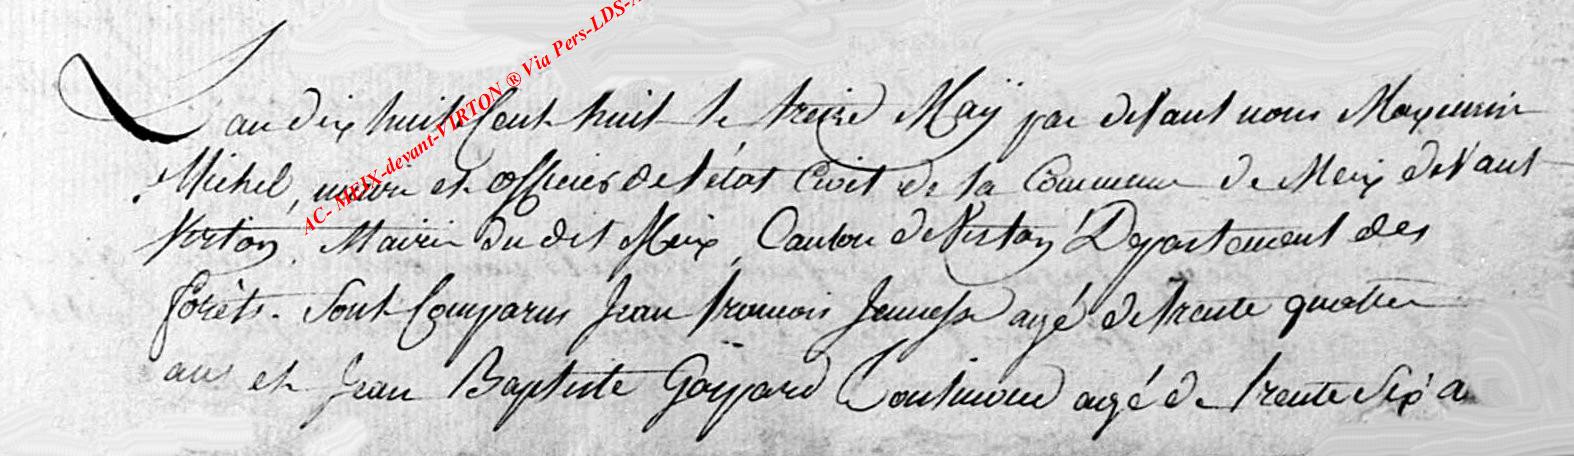 L'an dix huit Cent huit le treize Maÿ par devant nous Maximin
Michel, maire et officier de l'état Civil de la Commune de Meix devant
Virton, Mairie du dit Meix, Canton de Virton Departement des
forêts. Sont Comparus Jean francois Jeunesse agé de trente quatre
ans et Jean Baptiste Gaspard agé de trente Six a
AC- MEIX-devant-VIRTON ® Via Pers-LDS-